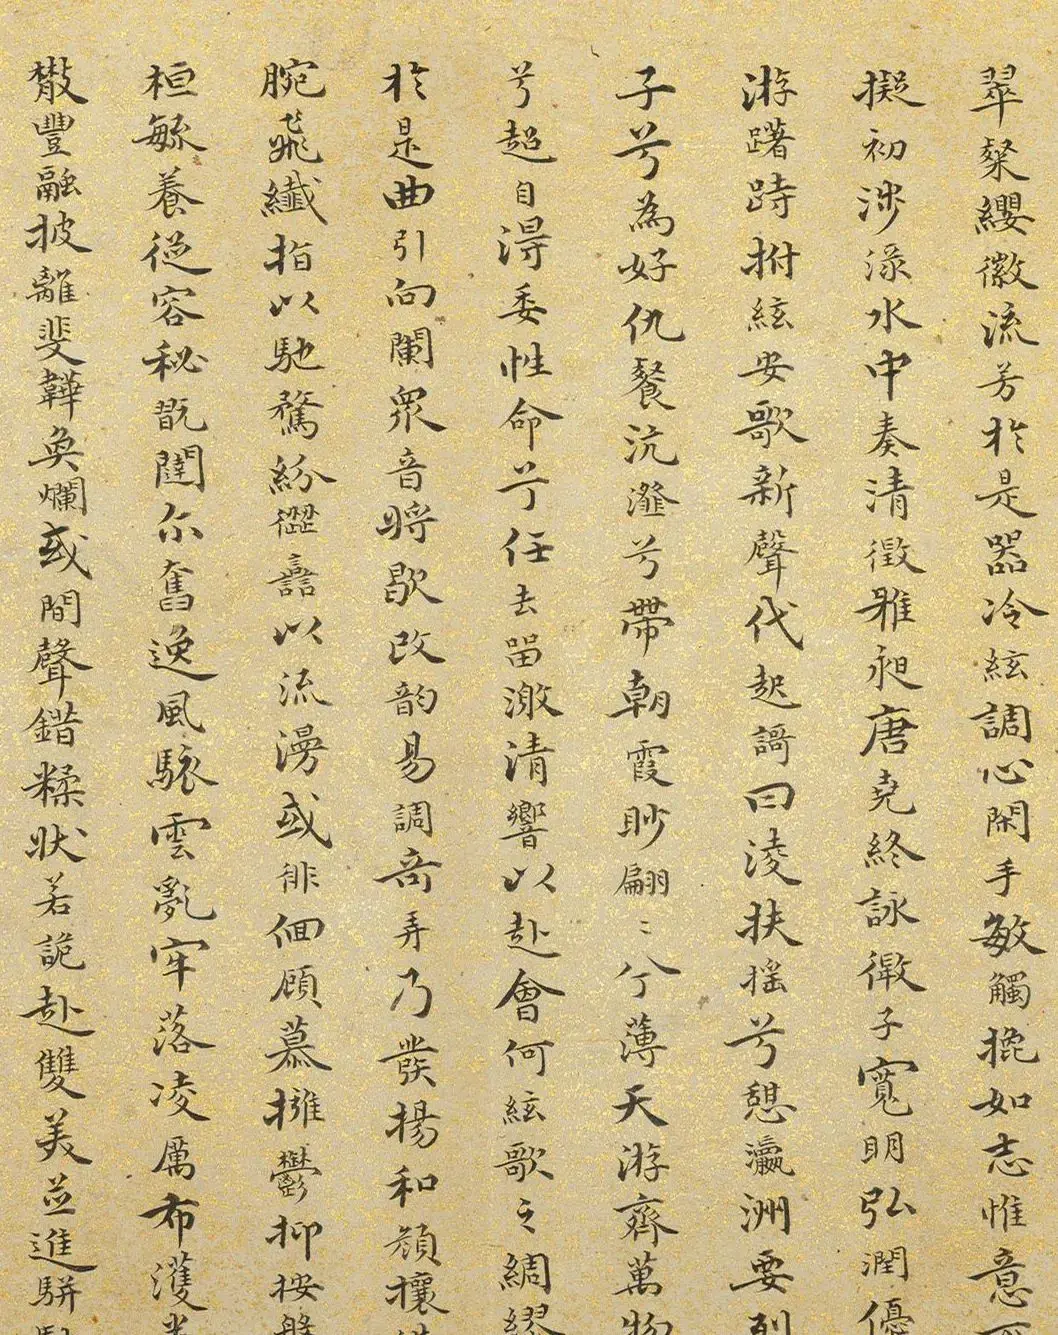 翠粲纓徽流芳於是器泠絃調心閑手敏觸㧗如志惟意
擬初涉淥水中奏清徵雅昶唐堯終詠微子寬明弘潤優
游躇跱拊絃安歌新聲代起謌曰淩扶搖兮憩瀛洲要列
子兮為好仇餐沆瀣兮帶朝霞眇翩〻兮薄天游齊萬物
兮超自得委性命兮任去留激清響以赴會何絃歌之綢繆
於是曲引向闌衆音將歇改韵易調奇弄乃發揚和顏攘
腕飛纖指以馳騖紛𠎷譶以流漫或徘徊顧慕擁鬱抑按盤
桓毓養從容秘翫闥尔奮逸風駭雲亂牢落凌厲布濩半
散豐融披離斐韡奐爛或間聲錯糅狀若詭赴雙美並進駢